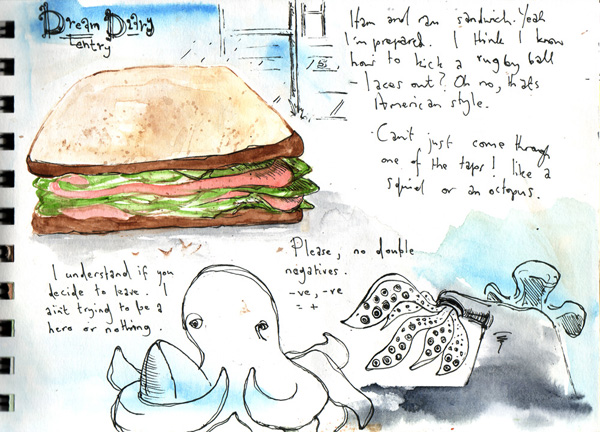 Dream Diary
Entry
Ham and ram sandwich. Yeah
I'm prepared. I think I know
how to kick a rugby ball
- laces out? Oh no, thats
American style.
Can't just come through
one of the taps! like a
squid or an octopus.
Please, no double
negatives.
-ve, -ve
= +
I understand if you
decide to leave. I
aint trying to be a
hero or nothing.